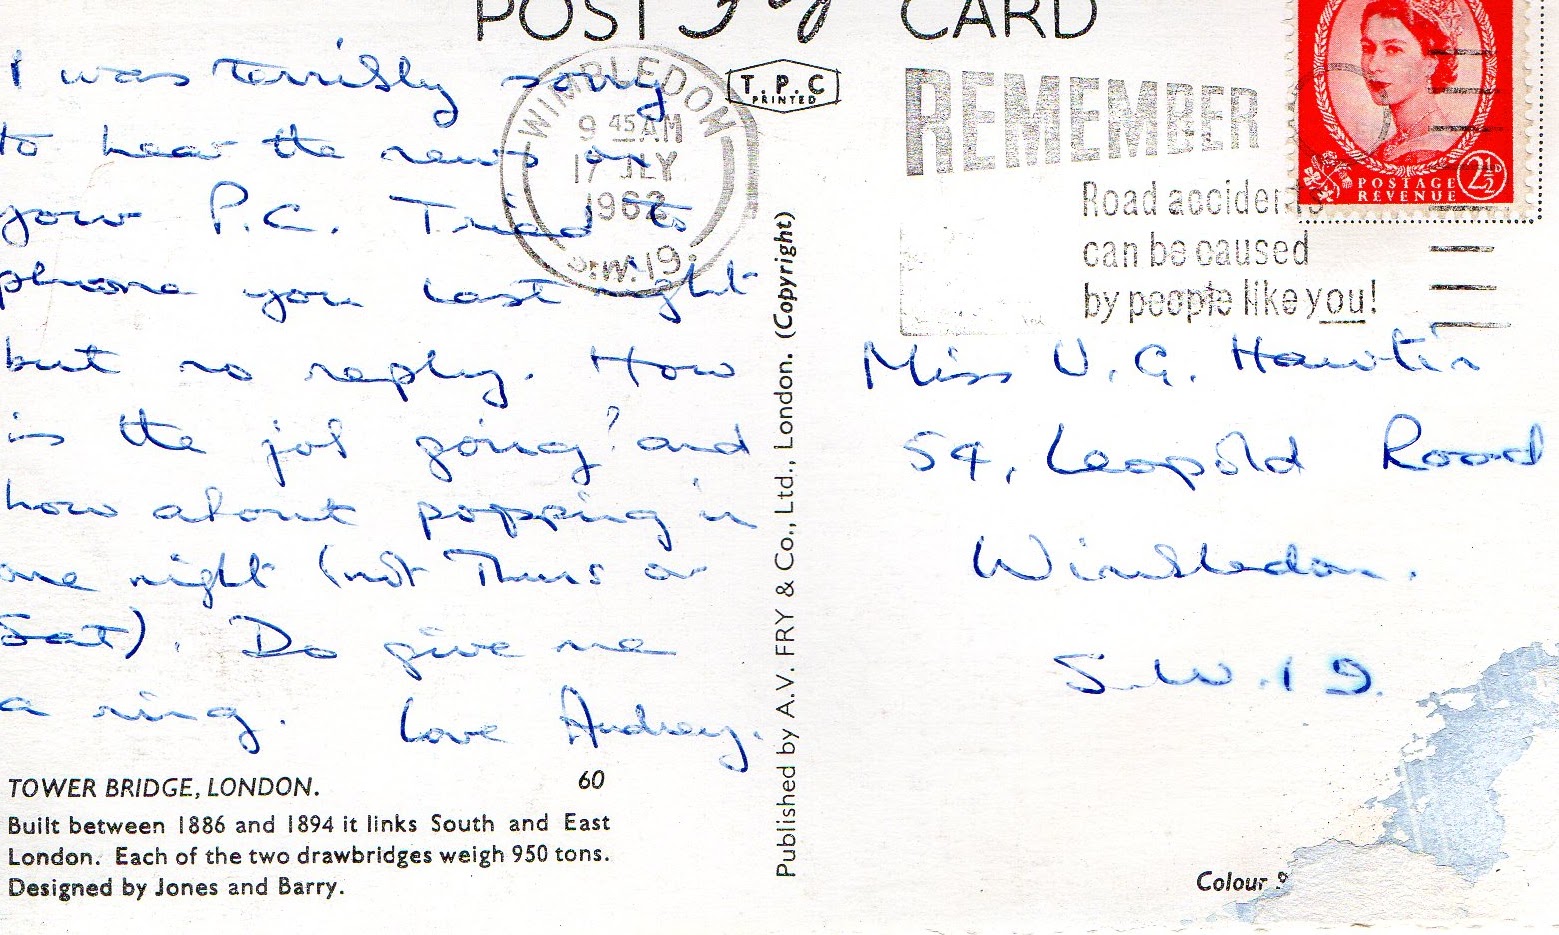 POST CARD
I was terribly sorry
to hear the news on
your P.C. Tried to
phone you last night
but no reply. How
is the job going? and
how about popping in
one night (not Thurs or
Sat). Do give me
a ring. Love Audrey.
TOWER BRIDGE, LONDON. 60
Built between 1886 and 1894 it links South and East
London. Each of the two drawbridges weigh 950 tons.
Designed by Jones and Barry.
WIMBLEDON
9 45 AM
17 JLY
1962
S.W.19.
T.P.C
PRINTED
Published by A.V. FRY & Co., Ltd., London. (Copyright)
REMEMBER
Road accidents
can be caused
by people like you!
POSTAGE 2½D
REVENUE
Miss V. G. Hawtin
54, Leopold Road
Wimbledon.
S.W.19.
Colour